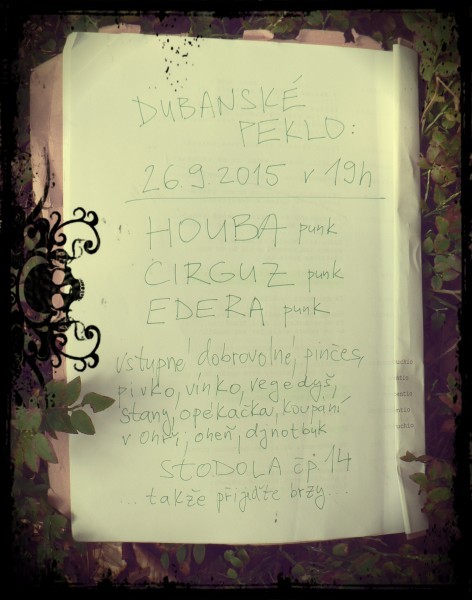 DUBANSKÉ
PEKLO:
26.9.2015 v 19h
HOUBA punk
CIRGUZ punk
EDERA punk
vstupné dobrovolné, pinčes,
pivko, vínko, vegedyš,
stany, opékačka, koupání
v Ohři, oheň, djnotbuk
STODOLA čp 14
...takže přijeďte brzy...